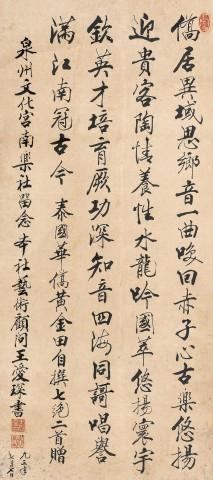 僑居異域思鄉音一曲喚回赤子心古樂悠揚
迎貴客陶情養性水龍吟國萃悠揚寰宇
欽英才培育厥功深知音四海同謌唱譽
滿江南冠古今 泰國華僑黃金田自撰七絕二首贈
泉州文化宮南樂社留念 本社藝術顧問王愛琛書